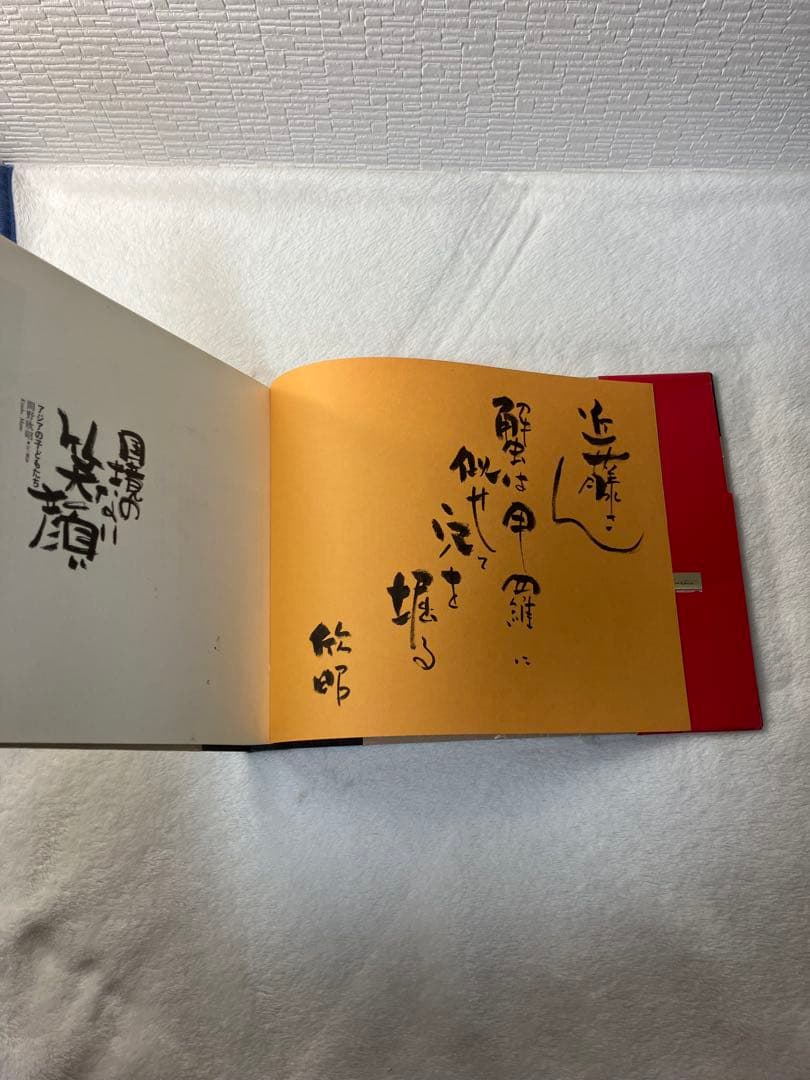 近藤さん
蟹は甲羅に
似せて
穴を
掘る
欣昭
国境の
ない
笑顔
アジアの子どもたち